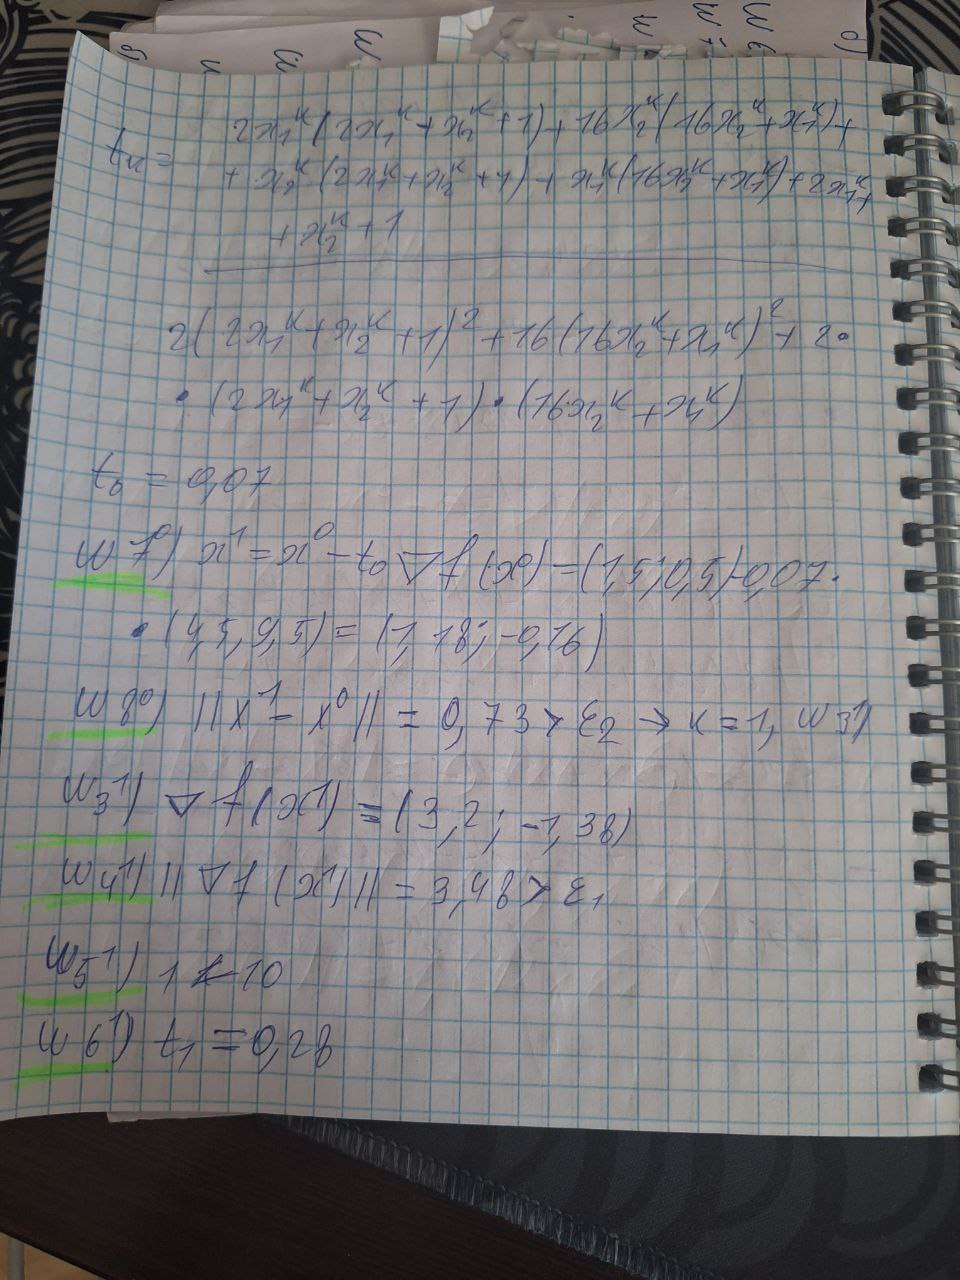 2x₁ᵏ(2x₁ᵏ+x₂ᵏ+1)+16x₂ᵏ(16x₂ᵏ+x₁ᵏ)+
tₖ=
+x₂ᵏ(2x₁ᵏ+x₂ᵏ+1)+x₁ᵏ(16x₂ᵏ+x₁ᵏ)+2x₁ᵏ+
+x₂ᵏ+1
2(2x₁ᵏ+x₂ᵏ+1)²+16(16x₂ᵏ+x₁ᵏ)²+2•
•(2x₁ᵏ+x₂ᵏ+1)•(16x₂ᵏ+x₁ᵏ)
t₀ = 0,07
ш7⁰) x¹=x⁰-t₀∇f(x⁰)=(1,5;0,5)-0,07•
•(4,5; 9,5)=(1,18; -0,16)
ш8⁰) ||x¹-x⁰|| = 0,73>ε₂ → k=1, ш3¹)
ш3¹) ∇f(x¹)=(3,2; -1,38)
ш4¹) ||∇f(x¹)|| = 3,48>ε₁
ш5¹) 1<10
ш6¹) t₁=0,28